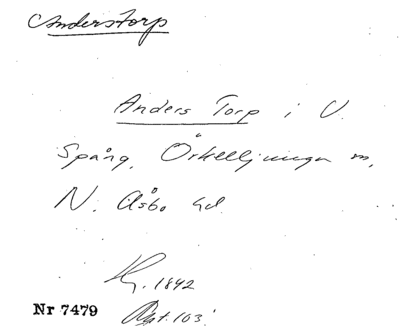 Anderstorp
Anders Torp i V.
Spång, Örkelljunga sn,
N. Åsbo hd.
1842
Nr 7479